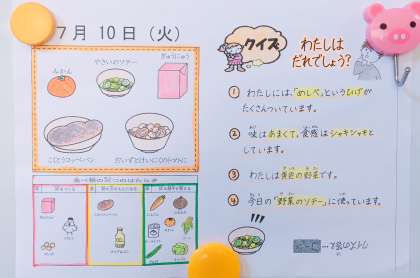 7月 10日 (火)
ぎゅうにゅう
みかん
やさいのソテー
こくとうコッペパン
だいずとけいにくのトマトに
クイズ
わたしは
だれでしょう?
① わたしには、「めしべ」というひげが
たくさんついています。
② 味はあまくて、食感はシャキシャキと
しています。
③ わたしは黄色の野菜です。
④ 今日の「野菜のソテー」に使っています。